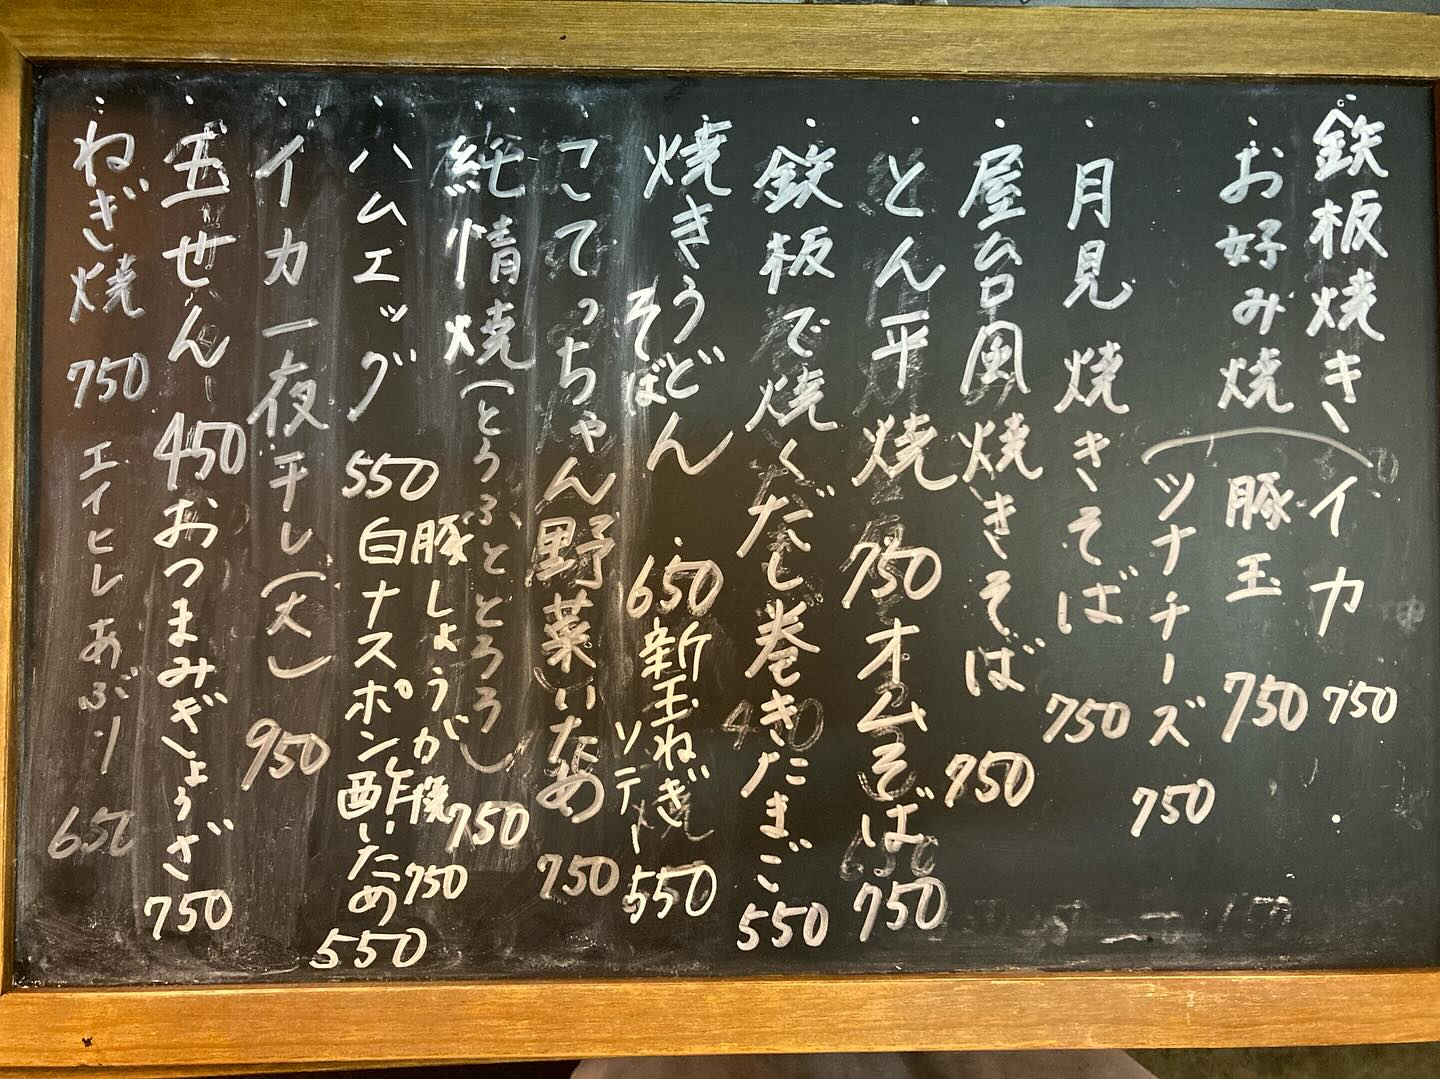 ・鉄板焼き、イカ 750
・お好み焼 豚玉 750
ツナチーズ 750
・月見焼きそば 750
・屋台風焼きそば 750
・とん平焼 750
オムそば 750
・鉄板で焼くだし巻きたまご 550
・焼きうどん そば 650
新玉ねぎソテー 550
・こてっちゃん野菜いため 750
・純情焼(とうふととろろ) 750
豚しょうが焼 750
・ハムエッグ 550
白ナスポン酢いため 550
・イカ一夜干し(大) 950
・玉せん 450
おつまみぎょうざ 750
・ねぎ焼 750
エイヒレあぶり 650